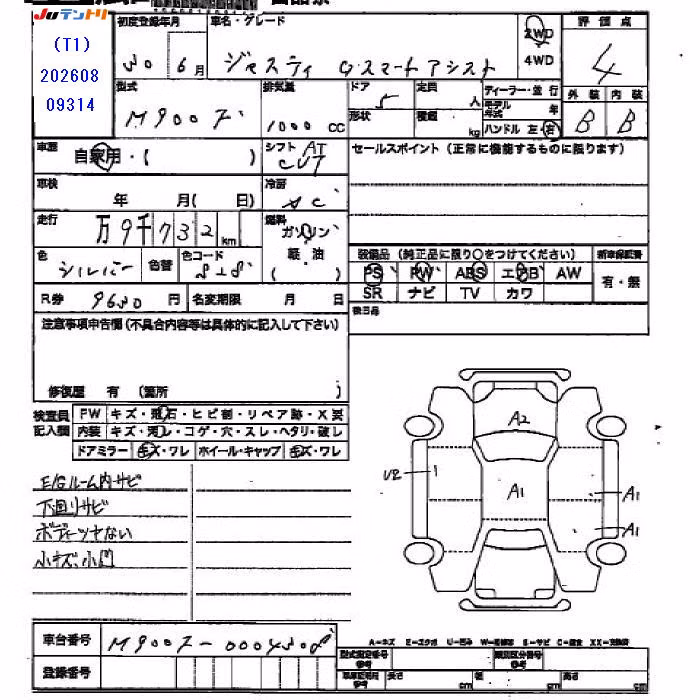 JUテントリ
(T1)
202608
09314
初度登録年月
車名・グレード
30 6月
ジャスティ Gスマートアシスト
2WD
4WD
評価点
4
型式
M900F
排気量
1000 CC
ドア
5
定員
人
形状
積載
kg
ディーラー・並行
モデル年式
年
ハンドル 左・右
外装 内装
B B
車歴
自家用・( )
シフト AT
CVT
セールスポイント(正常に機能するものに限ります)
車検
年 月( 日)
冷房
AC
走行
万9千732km
燃料
ガソリン
軽油
( )
色
シルバー
色替
色コード
R券 9630円
名変期限 月 日
装備品(純正品に限り○をつけてください)
新車保証書
PS PW ABS エアB AW
SR ナビ TV カワ
有・無
後日品
注意事項申告欄(不具合内容等は具体的に記入して下さい)
修復歴 有 (箇所 )
検査員記入欄
FW キズ・飛石・ヒビ割・リペア跡・X要
内装 キズ・汚レ・コゲ・穴・スレ・ヘタリ・破レ
ドアミラー キズ・ワレ ホイール・キャップ キズ・ワレ
E/Gルーム内サビ
下回りサビ
ボディーツヤない
小キズ、小凹
A2
U2
A1
A1
A1
車台番号
登録番号
A=キズ E=エクボ U=凹み S=サビ C=腐食
型式指定番号
類別区分番号
長さ cm
幅 cm
高さ cm